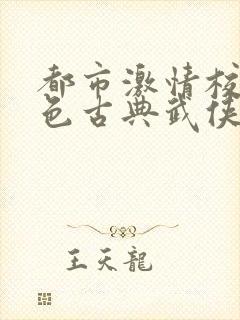 都市激情校
色古典武侠
王天龍